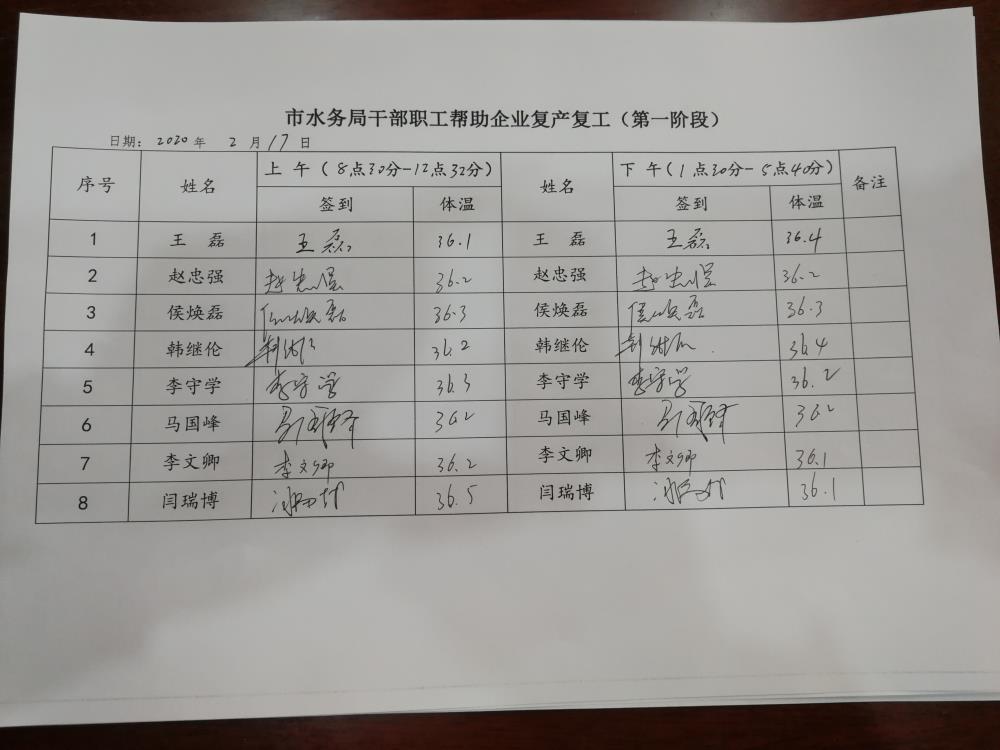 市水务局干部职工帮助企业复产复工（第一阶段）
日期：2020年 2月17日
序号 姓名 上 午（8点30分-12点32分） 姓名 下 午（1点30分-5点40分） 备注
签到 体温 签到 体温
1 王 磊 王磊 36.1 王 磊 王磊 36.4
2 赵忠强 赵忠强 36.2 赵忠强 赵忠强 36.2
3 侯焕磊 侯焕磊 36.3 侯焕磊 侯焕磊 36.3
4 韩继伦 36.2 韩继伦 36.4
5 李守学 李守学 36.3 李守学 李守学 36.2
6 马国峰 36.2 马国峰 36.2
7 李文卿 李文卿 36.2 李文卿 李文卿 36.1
8 闫瑞博 36.5 闫瑞博 36.1